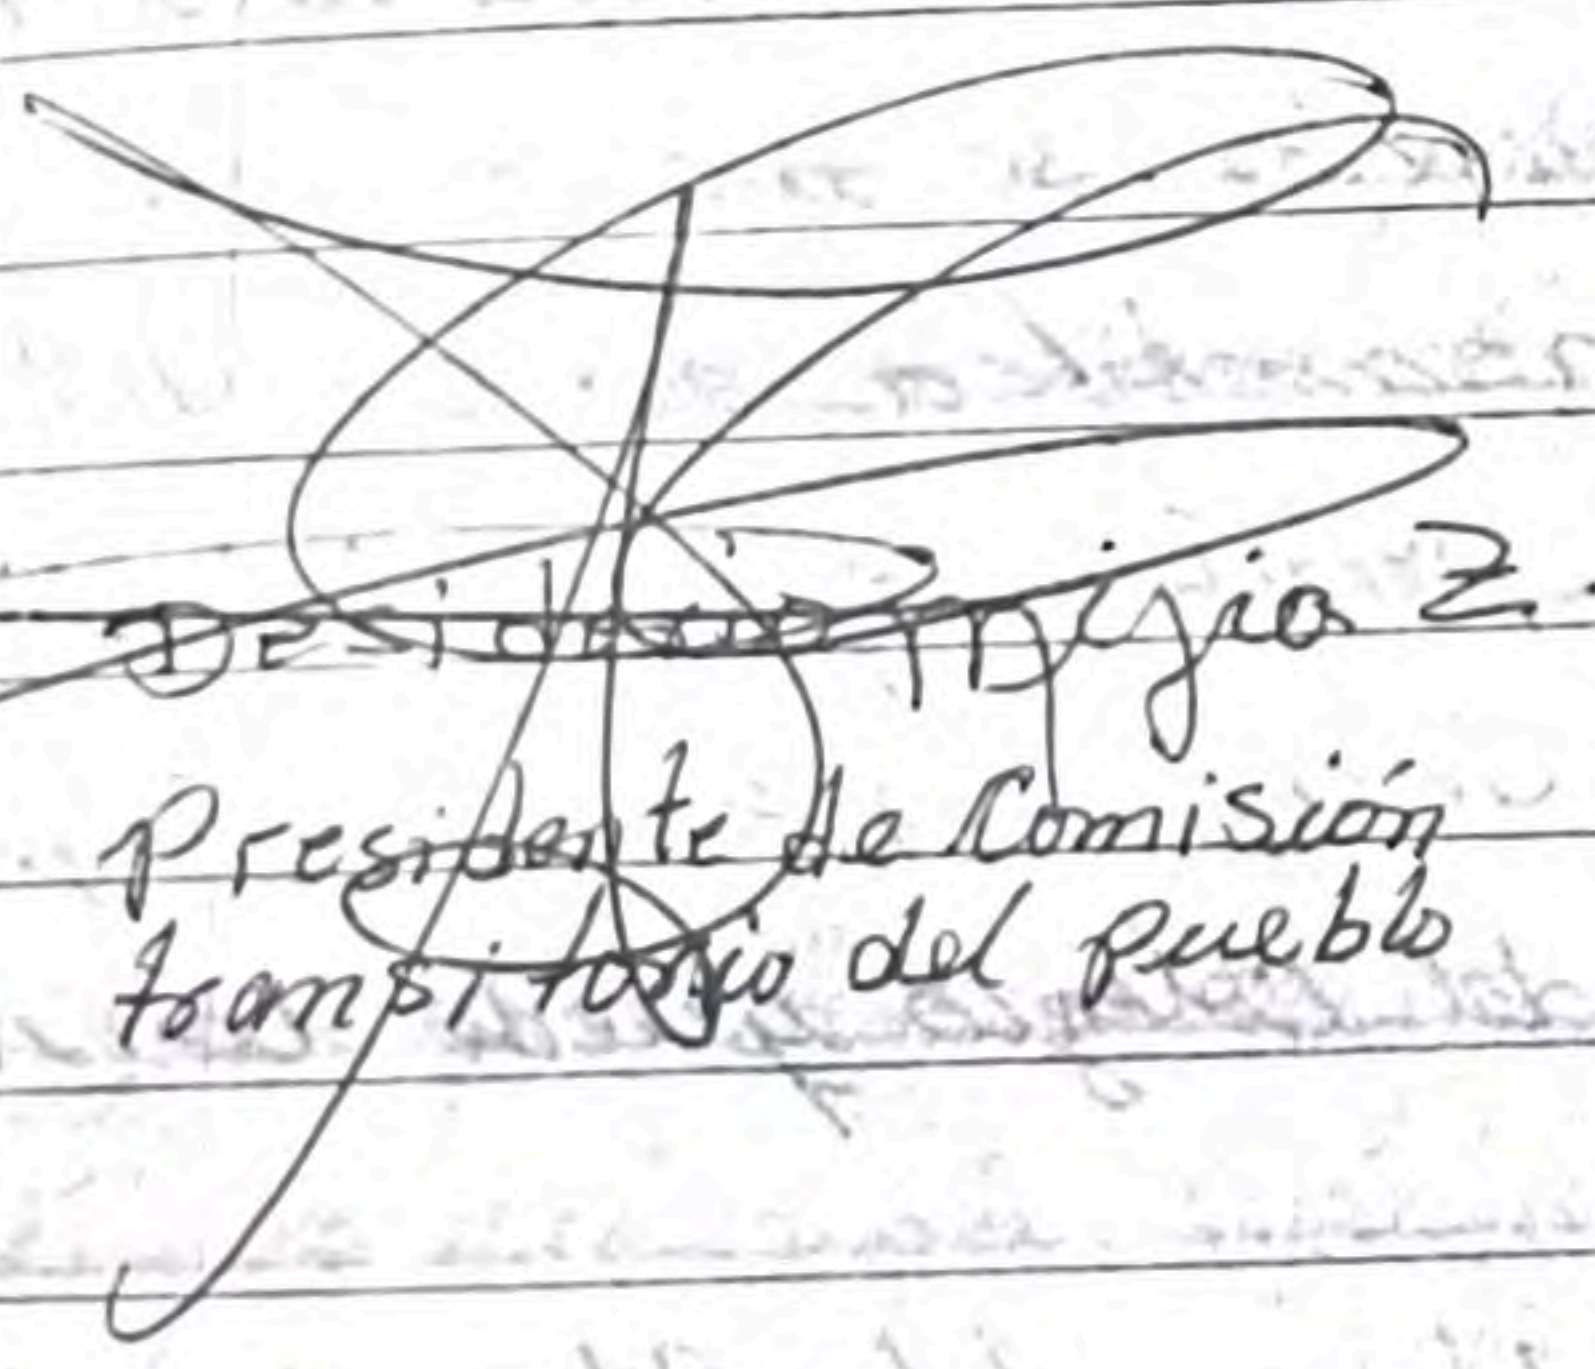 Mejia Z.
Presidente de Comisión
transitorio del pueblo